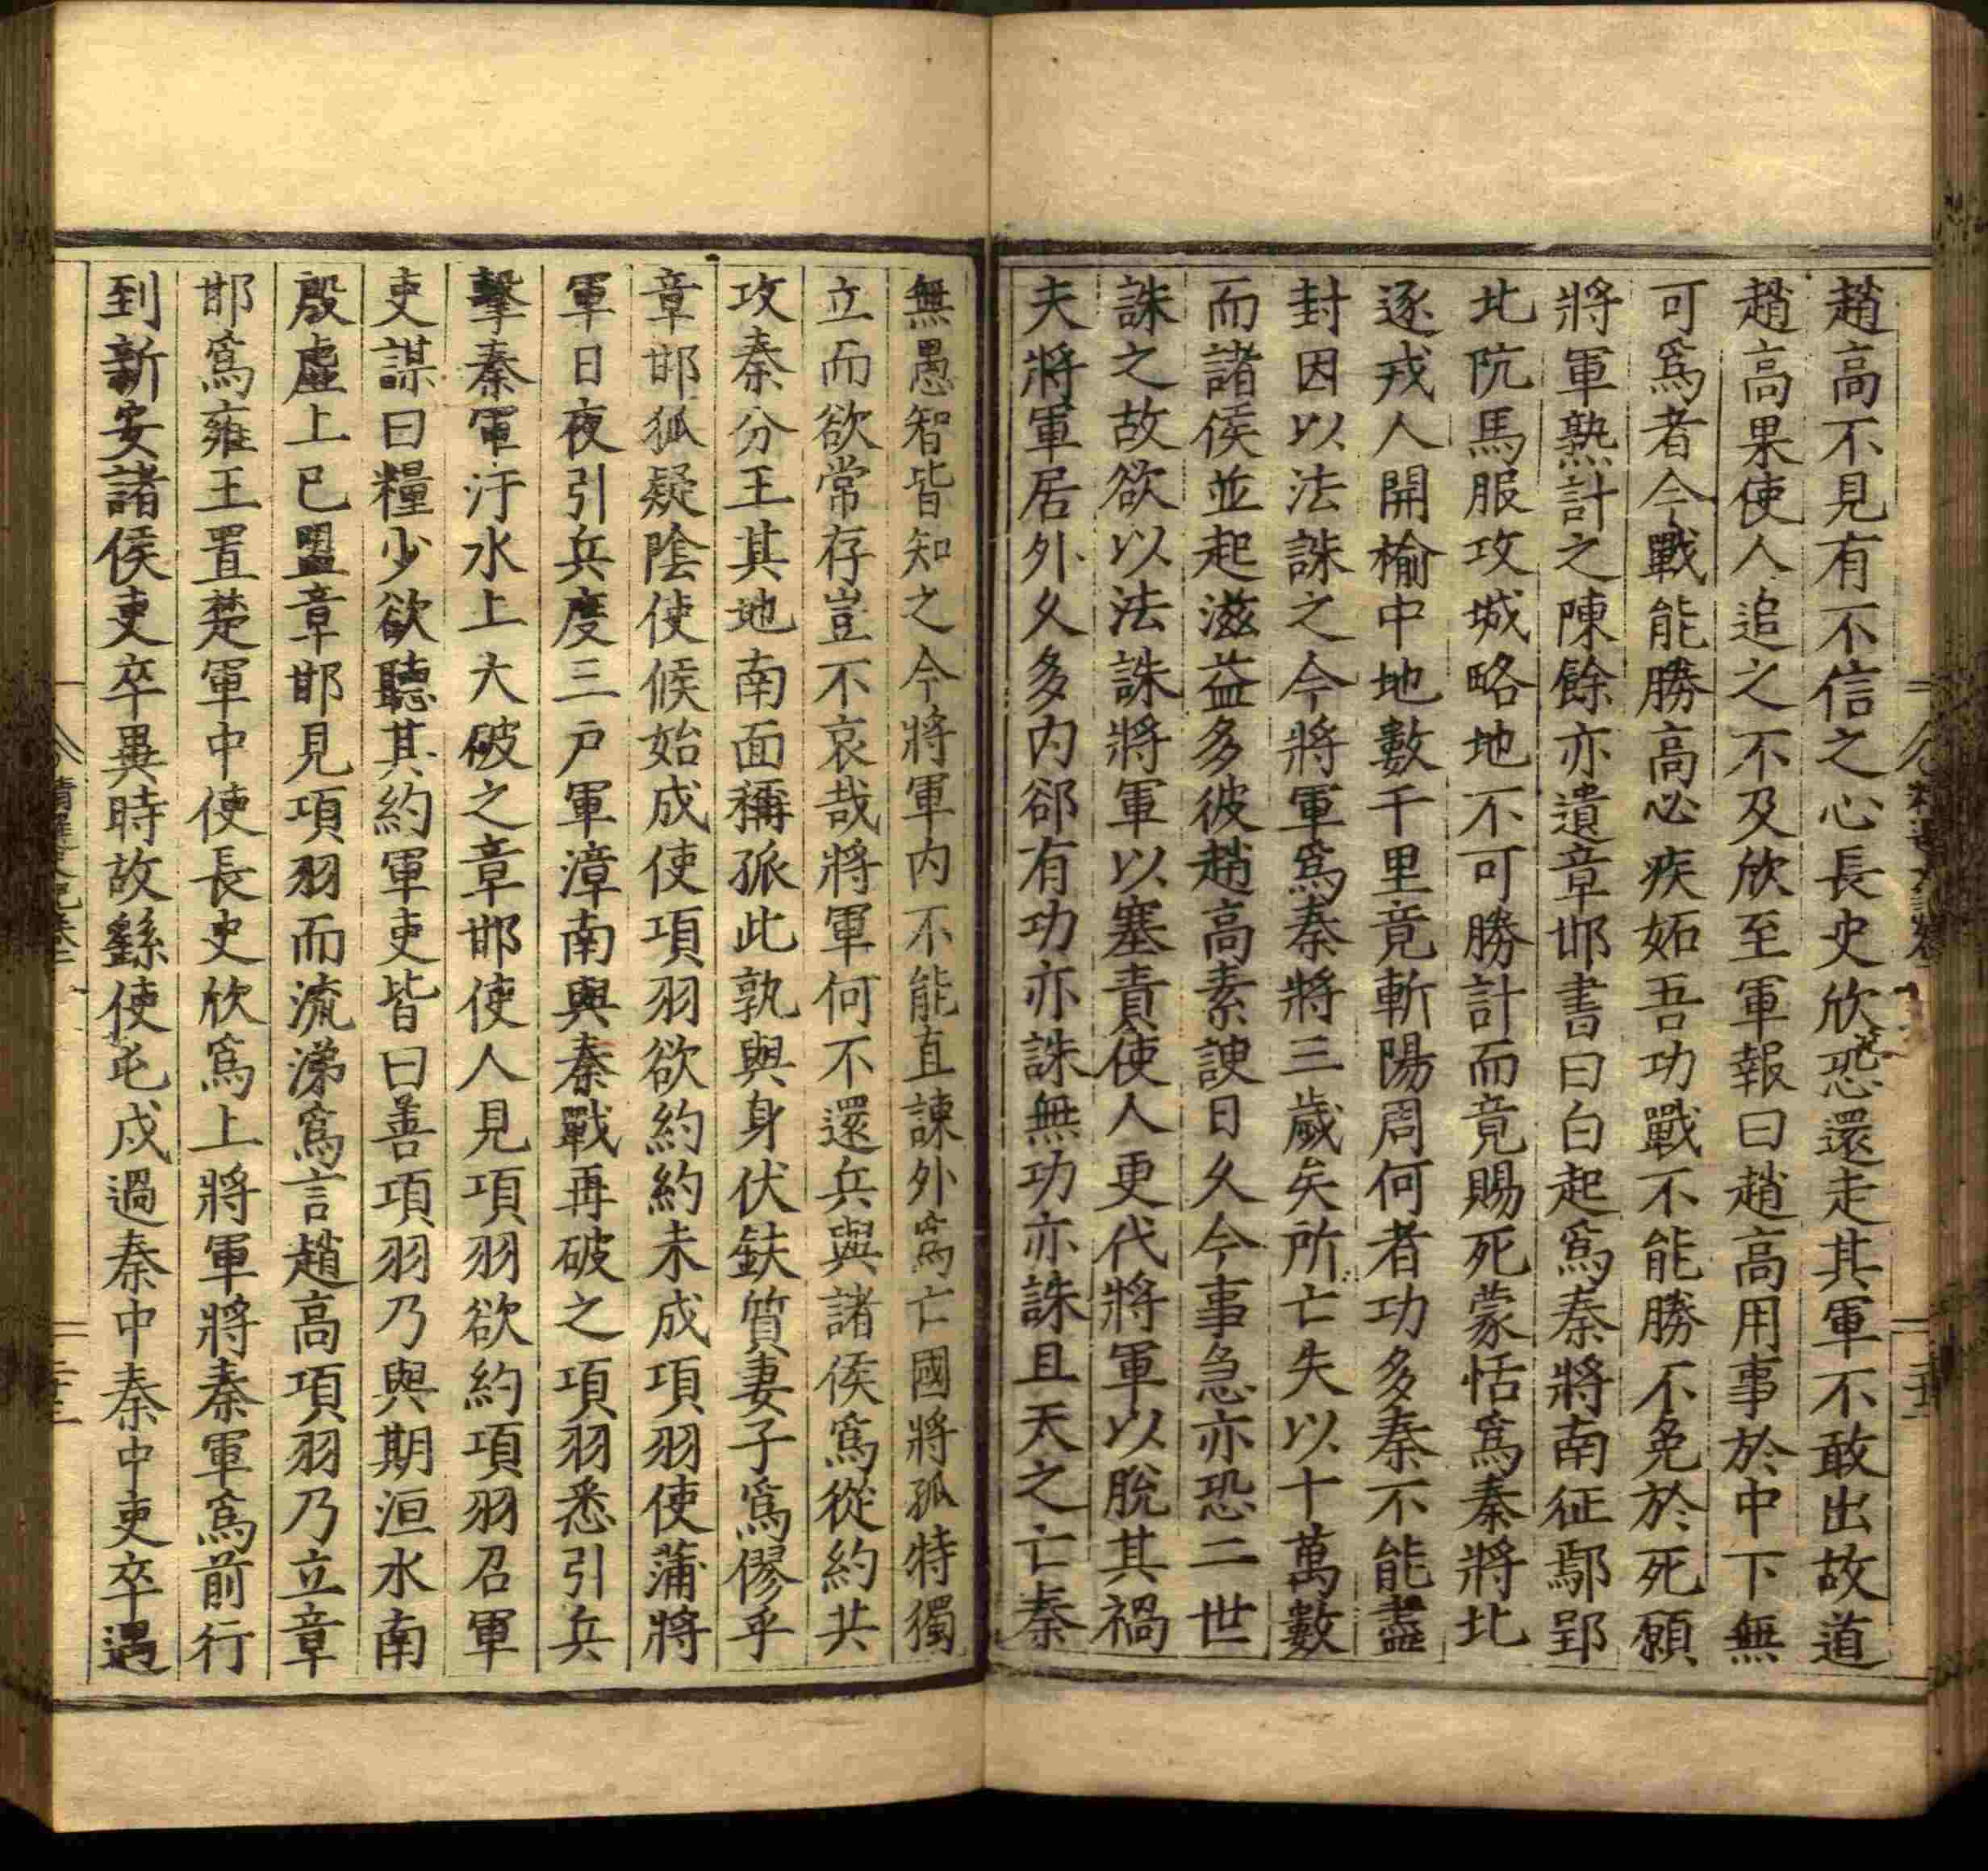 趙高不見有不信之心長史欣恐還走其軍不敢出故道
趙高果使人追之不及欣至軍報曰趙高用事於中下無
可爲者今戰能勝高必疾妬吾功戰不能勝不免於死願
將軍熟計之陳餘亦遺章邯書曰白起爲秦將南征鄢郢
北阬馬服攻城略地不可勝計而竟賜死蒙恬爲秦將北
逐戎人開榆中地數千里竟斬陽周何者功多秦不能盡
封因以法誅之今將軍爲秦將三歲矣所亡失以十萬數
而諸侯並起滋益多彼趙高素諛日久今事急亦恐二世
誅之故欲以法誅將軍以塞責使人更代將軍以脫其禍
夫將軍居外久多内郤有功亦誅無功亦誅且天之亡秦
無愚智皆知之今將軍内不能直諫外爲亡國將孤特獨
立而欲常存豈不哀哉將軍何不還兵與諸侯爲從約共
攻秦分王其地南面稱孤此孰與身伏鈇質妻子爲僇乎
章邯狐疑陰使候始成使項羽欲約約未成項羽使蒲將
軍日夜引兵度三戸軍漳南與秦戰再破之項羽悉引兵
擊秦軍汙水上大破之章邯使人見項羽欲約項羽召軍
吏謀曰糧少欲聽其約軍吏皆曰善項羽乃與期洹水南
殷虛上已盟章邯見項羽而流涕爲言趙高項羽乃立章
邯爲雍王置楚軍中使長史欣爲上將軍將秦軍爲前行
到新安諸侯吏卒異時故繇使屯戍過秦中秦中吏卒遇